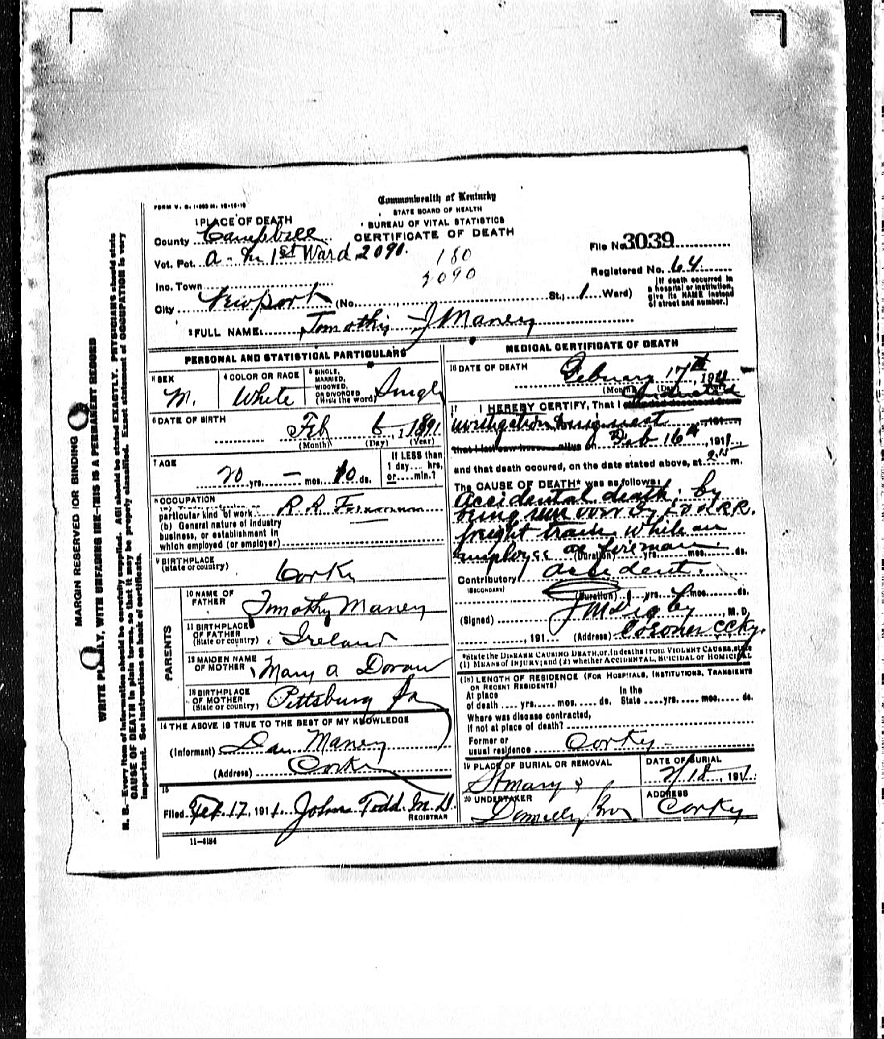 FORM V. S. 1-
Commonwealth of Kentucky
STATE BOARD OF HEALTH
BUREAU OF VITAL STATISTICS
CERTIFICATE OF DEATH
1 PLACE OF DEATH
County Campbell
Vot. Pct. A - in 1st Ward 2090.
180
2090
File No. 3039
Registered No. 64
Inc. Town
City Newport (No. St., 1 Ward)
[If death occurred in a hospital or institution, give its NAME instead of street and number.]
2 FULL NAME Timothy J Maney
PERSONAL AND STATISTICAL PARTICULARS
3 SEX M.
4 COLOR OR RACE White
5 SINGLE, MARRIED, WIDOWED, OR DIVORCED (Write the word) Single
6 DATE OF BIRTH Feb 6, 1891
(Month) (Day) (Year)
7 AGE 20 yrs. — mos. 10 ds.
If LESS than 1 day... hrs. or... min.?
8 OCCUPATION
particular kind of work R R Fireman
(b) General nature of industry
business, or establishment in
which employed (or employer)
9 BIRTHPLACE
(State or country) Cov Ky
PARENTS
10 NAME OF FATHER Timothy Maney
11 BIRTHPLACE OF FATHER (State or country) Ireland
12 MAIDEN NAME OF MOTHER Mary A Doran
13 BIRTHPLACE OF MOTHER (State or country) Pittsburg Pa
14 THE ABOVE IS TRUE TO THE BEST OF MY KNOWLEDGE
(Informant) Dan Maney
(Address) Cov Ky
15
Filed Feb. 17, 1911. John Todd M.D.
REGISTRAR
11—4184
MEDICAL CERTIFICATE OF DEATH
16 DATE OF DEATH February 17th 1911
(Month) (Day)
17 I HEREBY CERTIFY, That I conducted
investigation
Feb 16th, 191
and that death occured, on the date stated above, at m.
The CAUSE OF DEATH* was as follows:
Accidental death, by
being run over by R.R.
freight train, while an
employee as fireman.
(Duration) yrs. mos. ds.
Contributory accident.
(SECONDARY)
(Duration) yrs. mos. ds.
(Signed) J M Digby, M. D.
, 191 (Address) Coroner CC Ky.
*State the DISEASE CAUSING DEATH, or, in deaths from VIOLENT CAUSES, state
(1) MEANS OF INJURY; and (2) whether ACCIDENTAL, SUICIDAL or HOMICIDAL
18 LENGTH OF RESIDENCE (FOR HOSPITALS, INSTITUTIONS, TRANSIENTS
OR RECENT RESIDENTS)
At place of death yrs. mos. ds. In the State yrs. mos. ds.
Where was disease contracted,
if not at place of death?
Former or
usual residence Cov Ky
19 PLACE OF BURIAL OR REMOVAL St Marys
DATE OF BURIAL 2/18, 1911
20 UNDERTAKER Donnelly Bros
ADDRESS Cov Ky
MARGIN RESERVED FOR BINDING
WRITE PLAINLY, WITH UNFADING INK—THIS IS A PERMANENT RECORD
N. B.—Every item of information should be carefully supplied. AGE should be stated EXACTLY. PHYSICIANS should state
CAUSE OF DEATH in plain terms, so that it may be properly classified. Exact statement of OCCUPATION is very
important. See instructions on back of certificate.